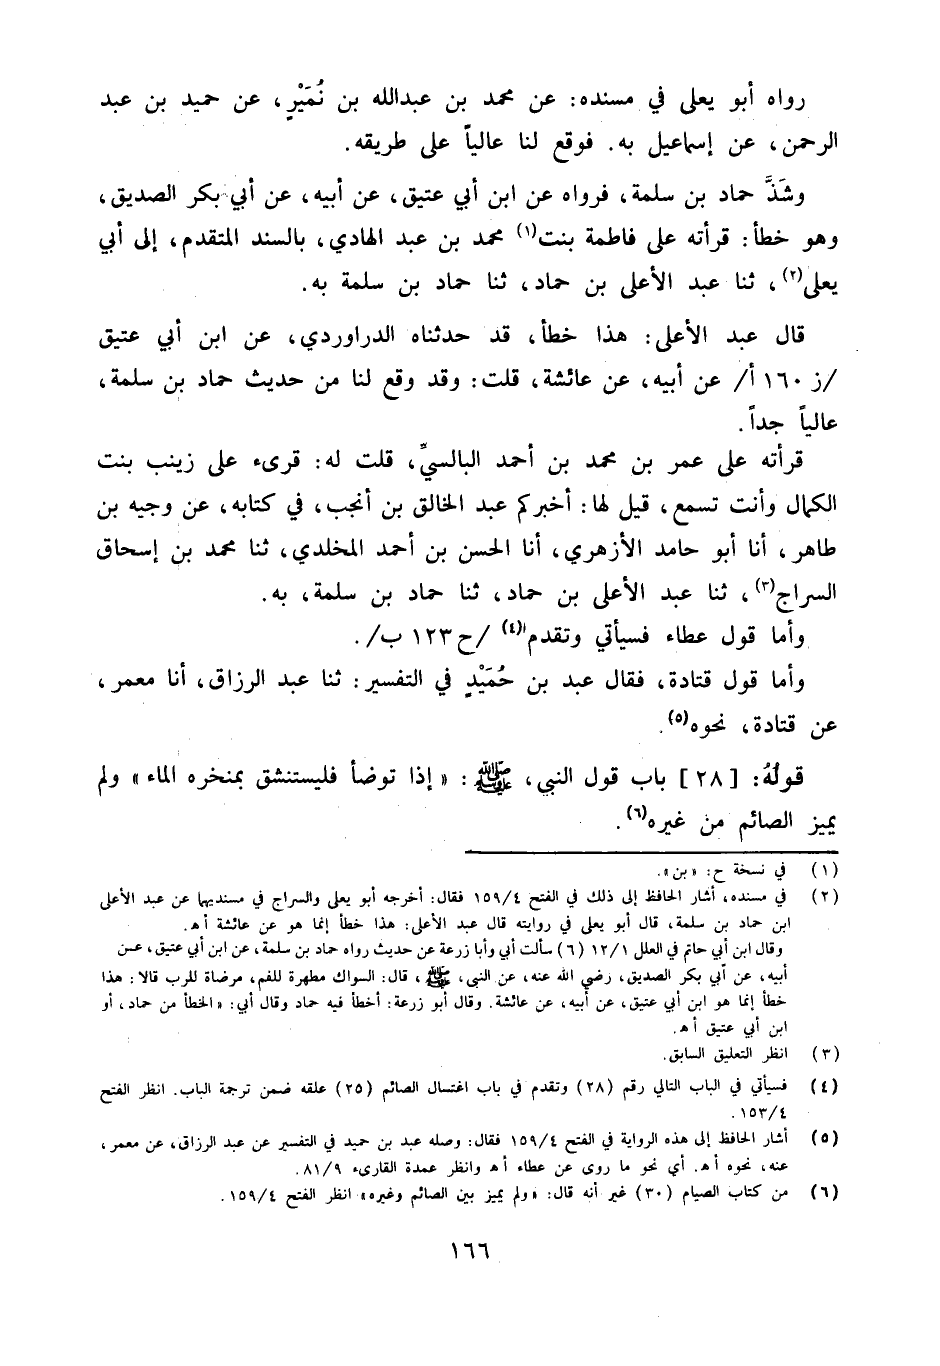 رواه أبو يعلى في مسنده: عن محمد بن عبدالله بن نُمَيْرٍ، عن حميد بن عبد
الرحمن، عن إسماعيل به. فوقع لنا عالياً على طريقه.
وشَذَّ حماد بن سلمة، فرواه عن ابن أبي عتيق، عن أبيه، عن أبي بكر الصديق،
وهو خطأ: قرأته على فاطمة بنت(١) محمد بن عبد الهادي، بالسند المتقدم، إلى أبي
يعلى(٢)، ثنا عبد الأعلى بن حماد، ثنا حماد بن سلمة به.
قال عبد الأعلى: هذا خطأ، قد حدثناه الدراوردي، عن ابن أبي عتيق
/ز ١٦٠ أ/ عن أبيه، عن عائشة، قلت: وقد وقع لنا من حديث حماد بن سلمة،
عالياً جداً.
قرأته على عمر بن محمد بن أحمد البالسيِّ، قلت له: قرىء على زينب بنت
الكمال وأنت تسمع، قيل لها: أخبركم عبد الخالق بن أنجب، في كتابه، عن وجيه بن
طاهر، أنا أبو حامد الأزهري، أنا الحسن بن أحمد المخلدي، ثنا محمد بن إسحاق
السراج(٣)، ثنا عبد الأعلى بن حماد، ثنا حماد بن سلمة، به.
وأما قول عطاء فسيأتي وتقدم(٤) /ح ١٢٣ ب/.
وأما قول قتادة، فقال عبد بن حُمَيْدٍ في التفسير: ثنا عبد الرزاق، أنا معمر،
عن قتادة، نحوه(٥).
قولُهُ: [٢٨] باب قول النبي، ﷺ: «إذا توضأ فليستنشق بمنخره الماء» ولم
يميز الصائم من غيره(٦).
(١) في نسخة ح: «بن».
(٢) في مسنده، أشار الحافظ إلى ذلك في الفتح ١٥٩/٤ فقال: أخرجه أبو يعلى والسراج في مسنديهما عن عبد الأعلى
ابن حماد بن سلمة، قال أبو يعلى في روايته قال عبد الأعلى: هذا خطأ إنما هو عن عائشة أ هـ.
وقال ابن أبي حاتم في العلل ١٢/١ (٦) سألت أبي وأبا زرعة عن حديث رواه حماد بن سلمة، عن ابن أبي عتيق، عن
أبيه، عن أبي بكر الصديق، رضي الله عنه، عن النبي، ﷺ، قال: السواك مطهرة للفم، مرضاة للرب قالا: هذا
خطأ إنما هو ابن أبي عتيق، عن أبيه، عن عائشة. وقال أبو زرعة: أخطأ فيه حماد وقال أبي: «الخطأ من حماد، أو
ابن أبي عتيق أ هـ.
(٣) انظر التعليق السابق.
(٤) فسيأتي في الباب التالي رقم (٢٨) وتقدم في باب اغتسال الصائم (٢٥) علقه ضمن ترجمة الباب. انظر الفتح
١٥٣/٤.
(٥) أشار الحافظ إلى هذه الرواية في الفتح ١٥٩/٤ فقال: وصله عبد بن حميد في التفسير عن عبد الرزاق، عن معمر،
عنه، نحوه أ هـ. أي نحو ما روى عن عطاء أ هـ وانظر عمدة القارىء ٨١/٩.
(٦) من كتاب الصيام (٣٠) غير أنه قال: «ولم يميز بين الصائم وغيره» انظر الفتح ١٥٩/٤.
١٦٦